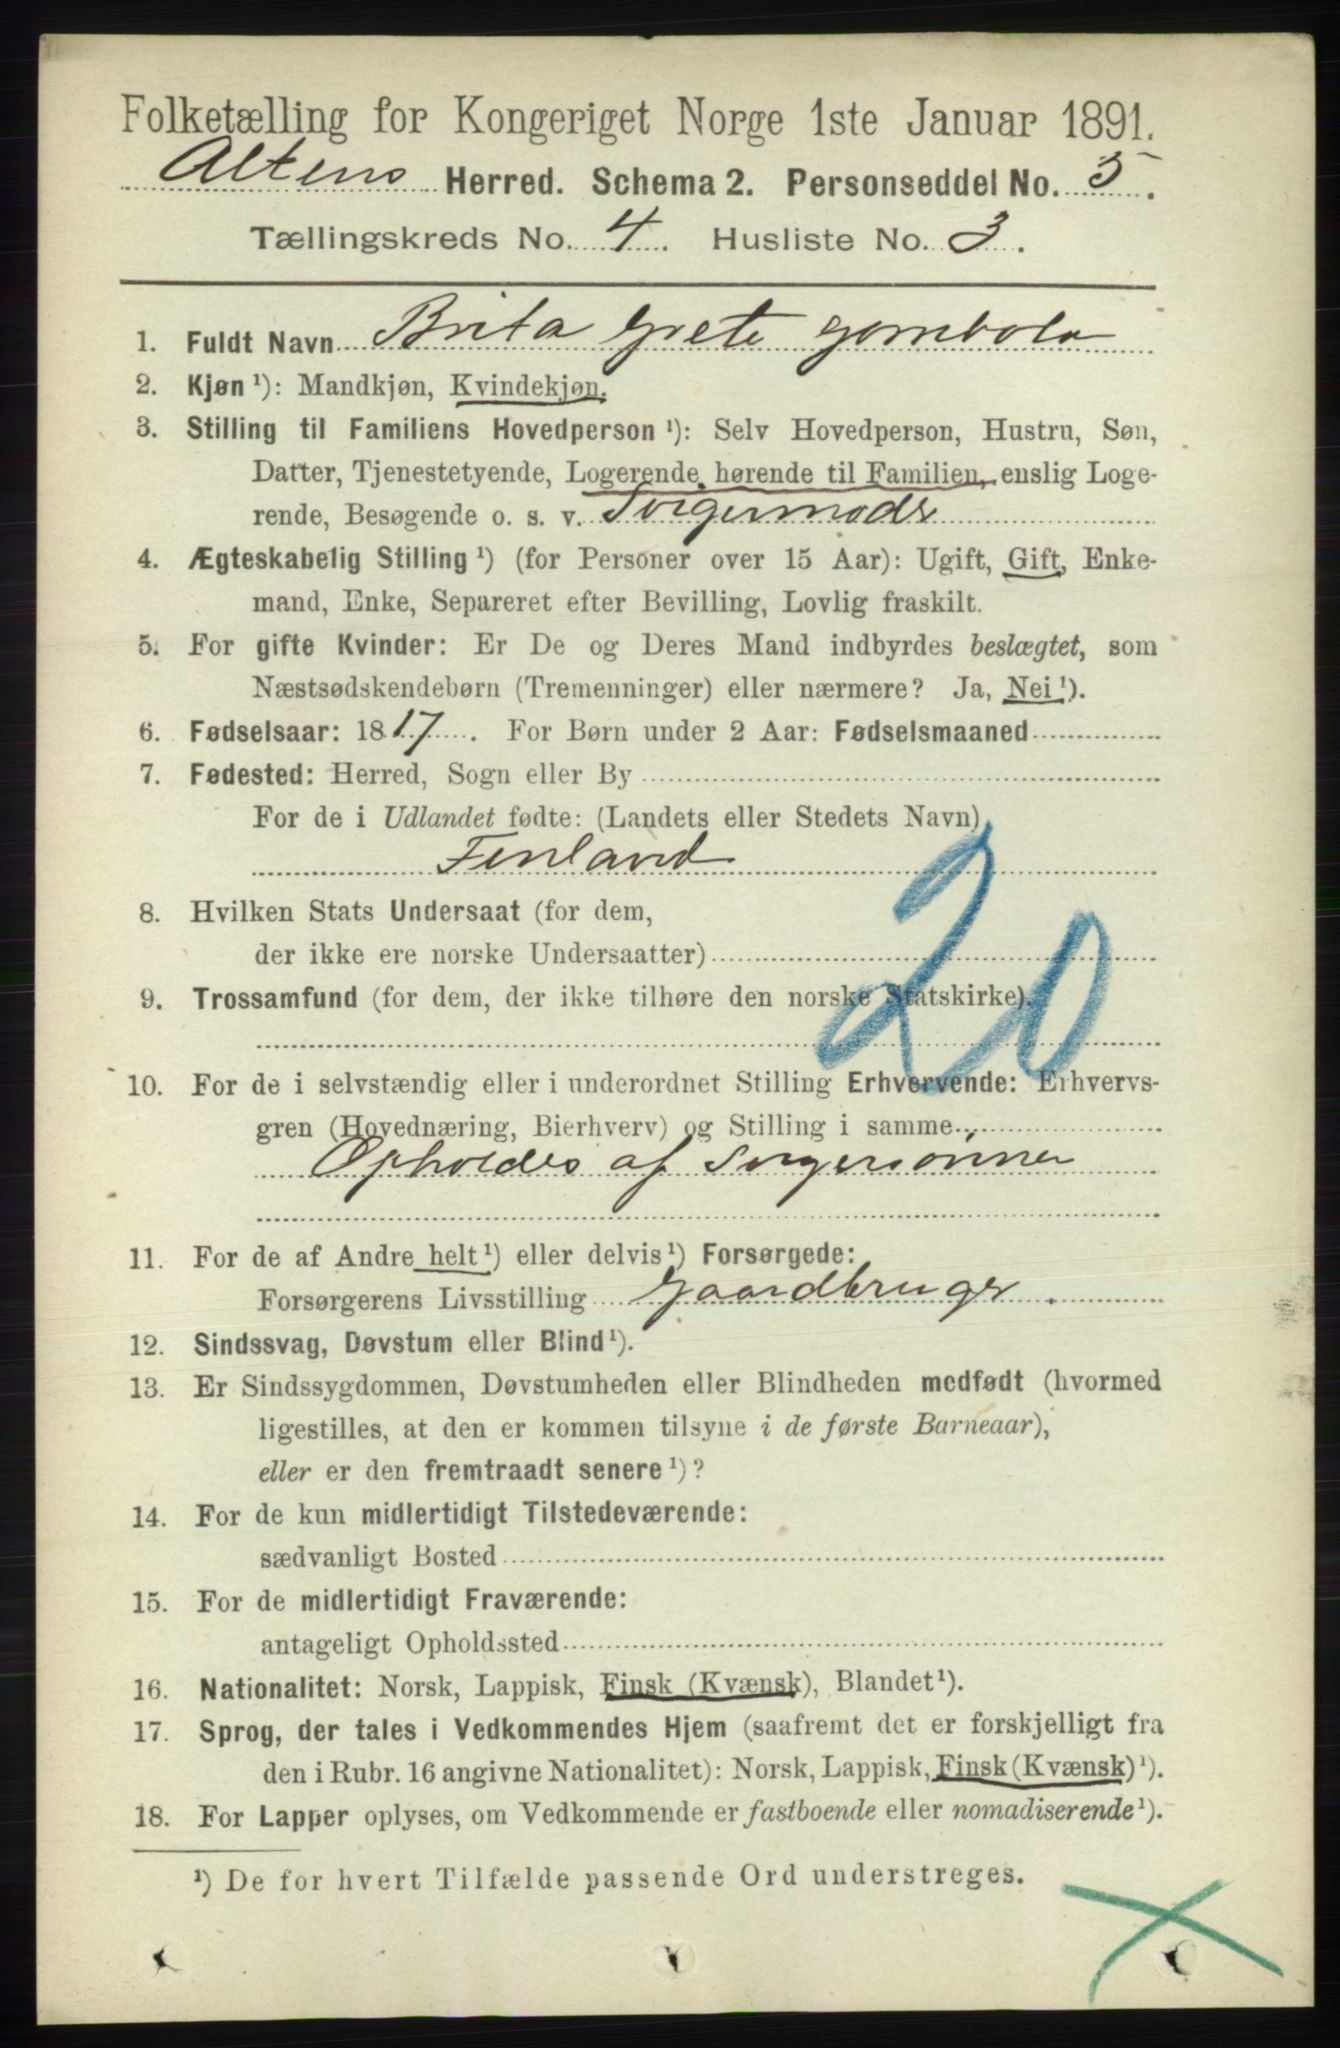 Folketælling for Kongeriget Norge 1ste Januar 1891.
Altens Herred. Schema 2. Personseddel No. 5.
Tællingskreds No. 4. Husliste No. 3.
1. Fuldt Navn Brita Grete Gombola
2. Kjøn ¹): Mandkjøn, Kvindekjøn.
3. Stilling til Familiens Hovedperson ¹): Selv Hovedperson, Hustru, Søn,
Datter, Tjenestetyende, Logerende hørende til Familien, enslig Loge-
rende, Besøgende o. s. v. Svigermoder
4. Ægteskabelig Stilling ¹) (for Personer over 15 Aar): Ugift, Gift, Enke-
mand, Enke, Separeret efter Bevilling, Lovlig fraskilt.
5. For gifte Kvinder: Er De og Deres Mand indbyrdes beslægtet, som
Næstsødskendebørn (Tremenninger) eller nærmere? Ja, Nei ¹).
6. Fødselsaar: 1817. For Børn under 2 Aar: Fødselsmaaned
7. Fødested: Herred, Sogn eller By
For de i Udlandet fødte: (Landets eller Stedets Navn)
Finland
20
8. Hvilken Stats Undersaat (for dem,
der ikke ere norske Undersaatter)
9. Trossamfund (for dem, der ikke tilhøre den norske Statskirke).
10. For de i selvstændig eller i underordnet Stilling Erhvervende: Erhvervs-
gren (Hovednæring, Bierhverv) og Stilling i samme
Opholdes af Svigersønner
11. For de af Andre helt ¹) eller delvis ¹) Forsørgede:
Forsørgerens Livsstilling Gaardbruger.
12. Sindssvag, Døvstum eller Blind ¹).
13. Er Sindssygdommen, Døvstumheden eller Blindheden medfødt (hvormed
ligestilles, at den er kommen tilsyne i de første Barneaar),
eller er den fremtraadt senere ¹)?
14. For de kun midlertidigt Tilstedeværende:
sædvanligt Bosted
15. For de midlertidigt Fraværende:
antageligt Opholdssted
16. Nationalitet: Norsk, Lappisk, Finsk (Kvænsk), Blandet ¹).
17. Sprog, der tales i Vedkommendes Hjem (saafremt det er forskjelligt fra
den i Rubr. 16 angivne Nationalitet): Norsk, Lappisk, Finsk (Kvænsk) ¹).
18. For Lapper oplyses, om Vedkommende er fastboende eller nomadiserende ¹).
¹) De for hvert Tilfælde passende Ord understreges.